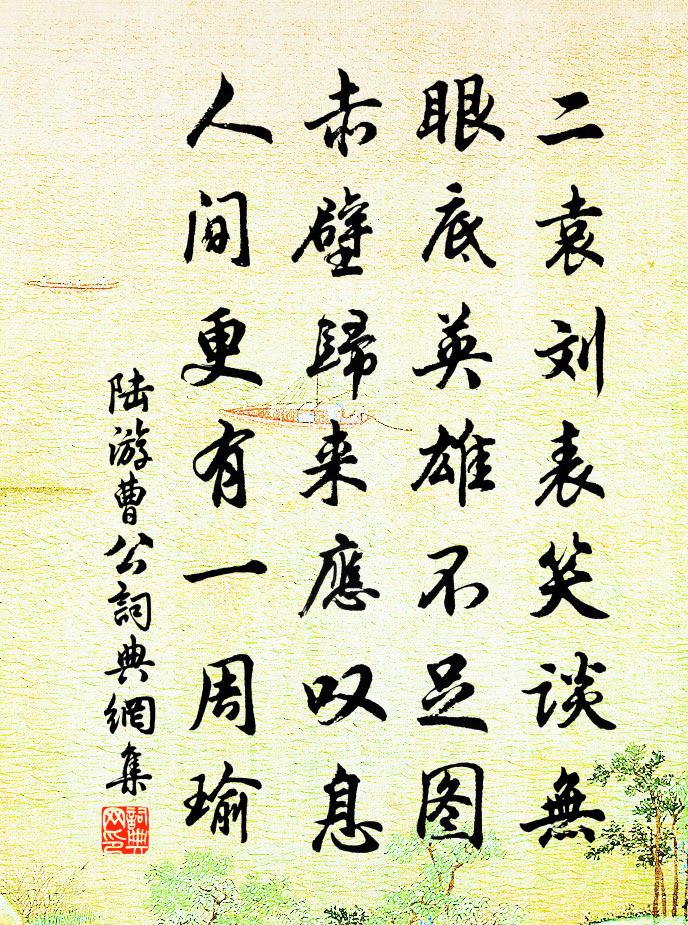 二袁刘表笑谈無
眼底英雄不足图
赤壁歸来應叹息
人间更有一周瑜
陆游曹公詞典網集
詞典网印